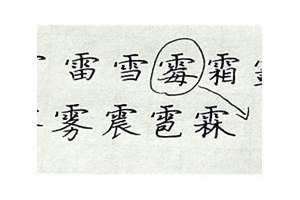 雷雪霉霜
雾震雹霖